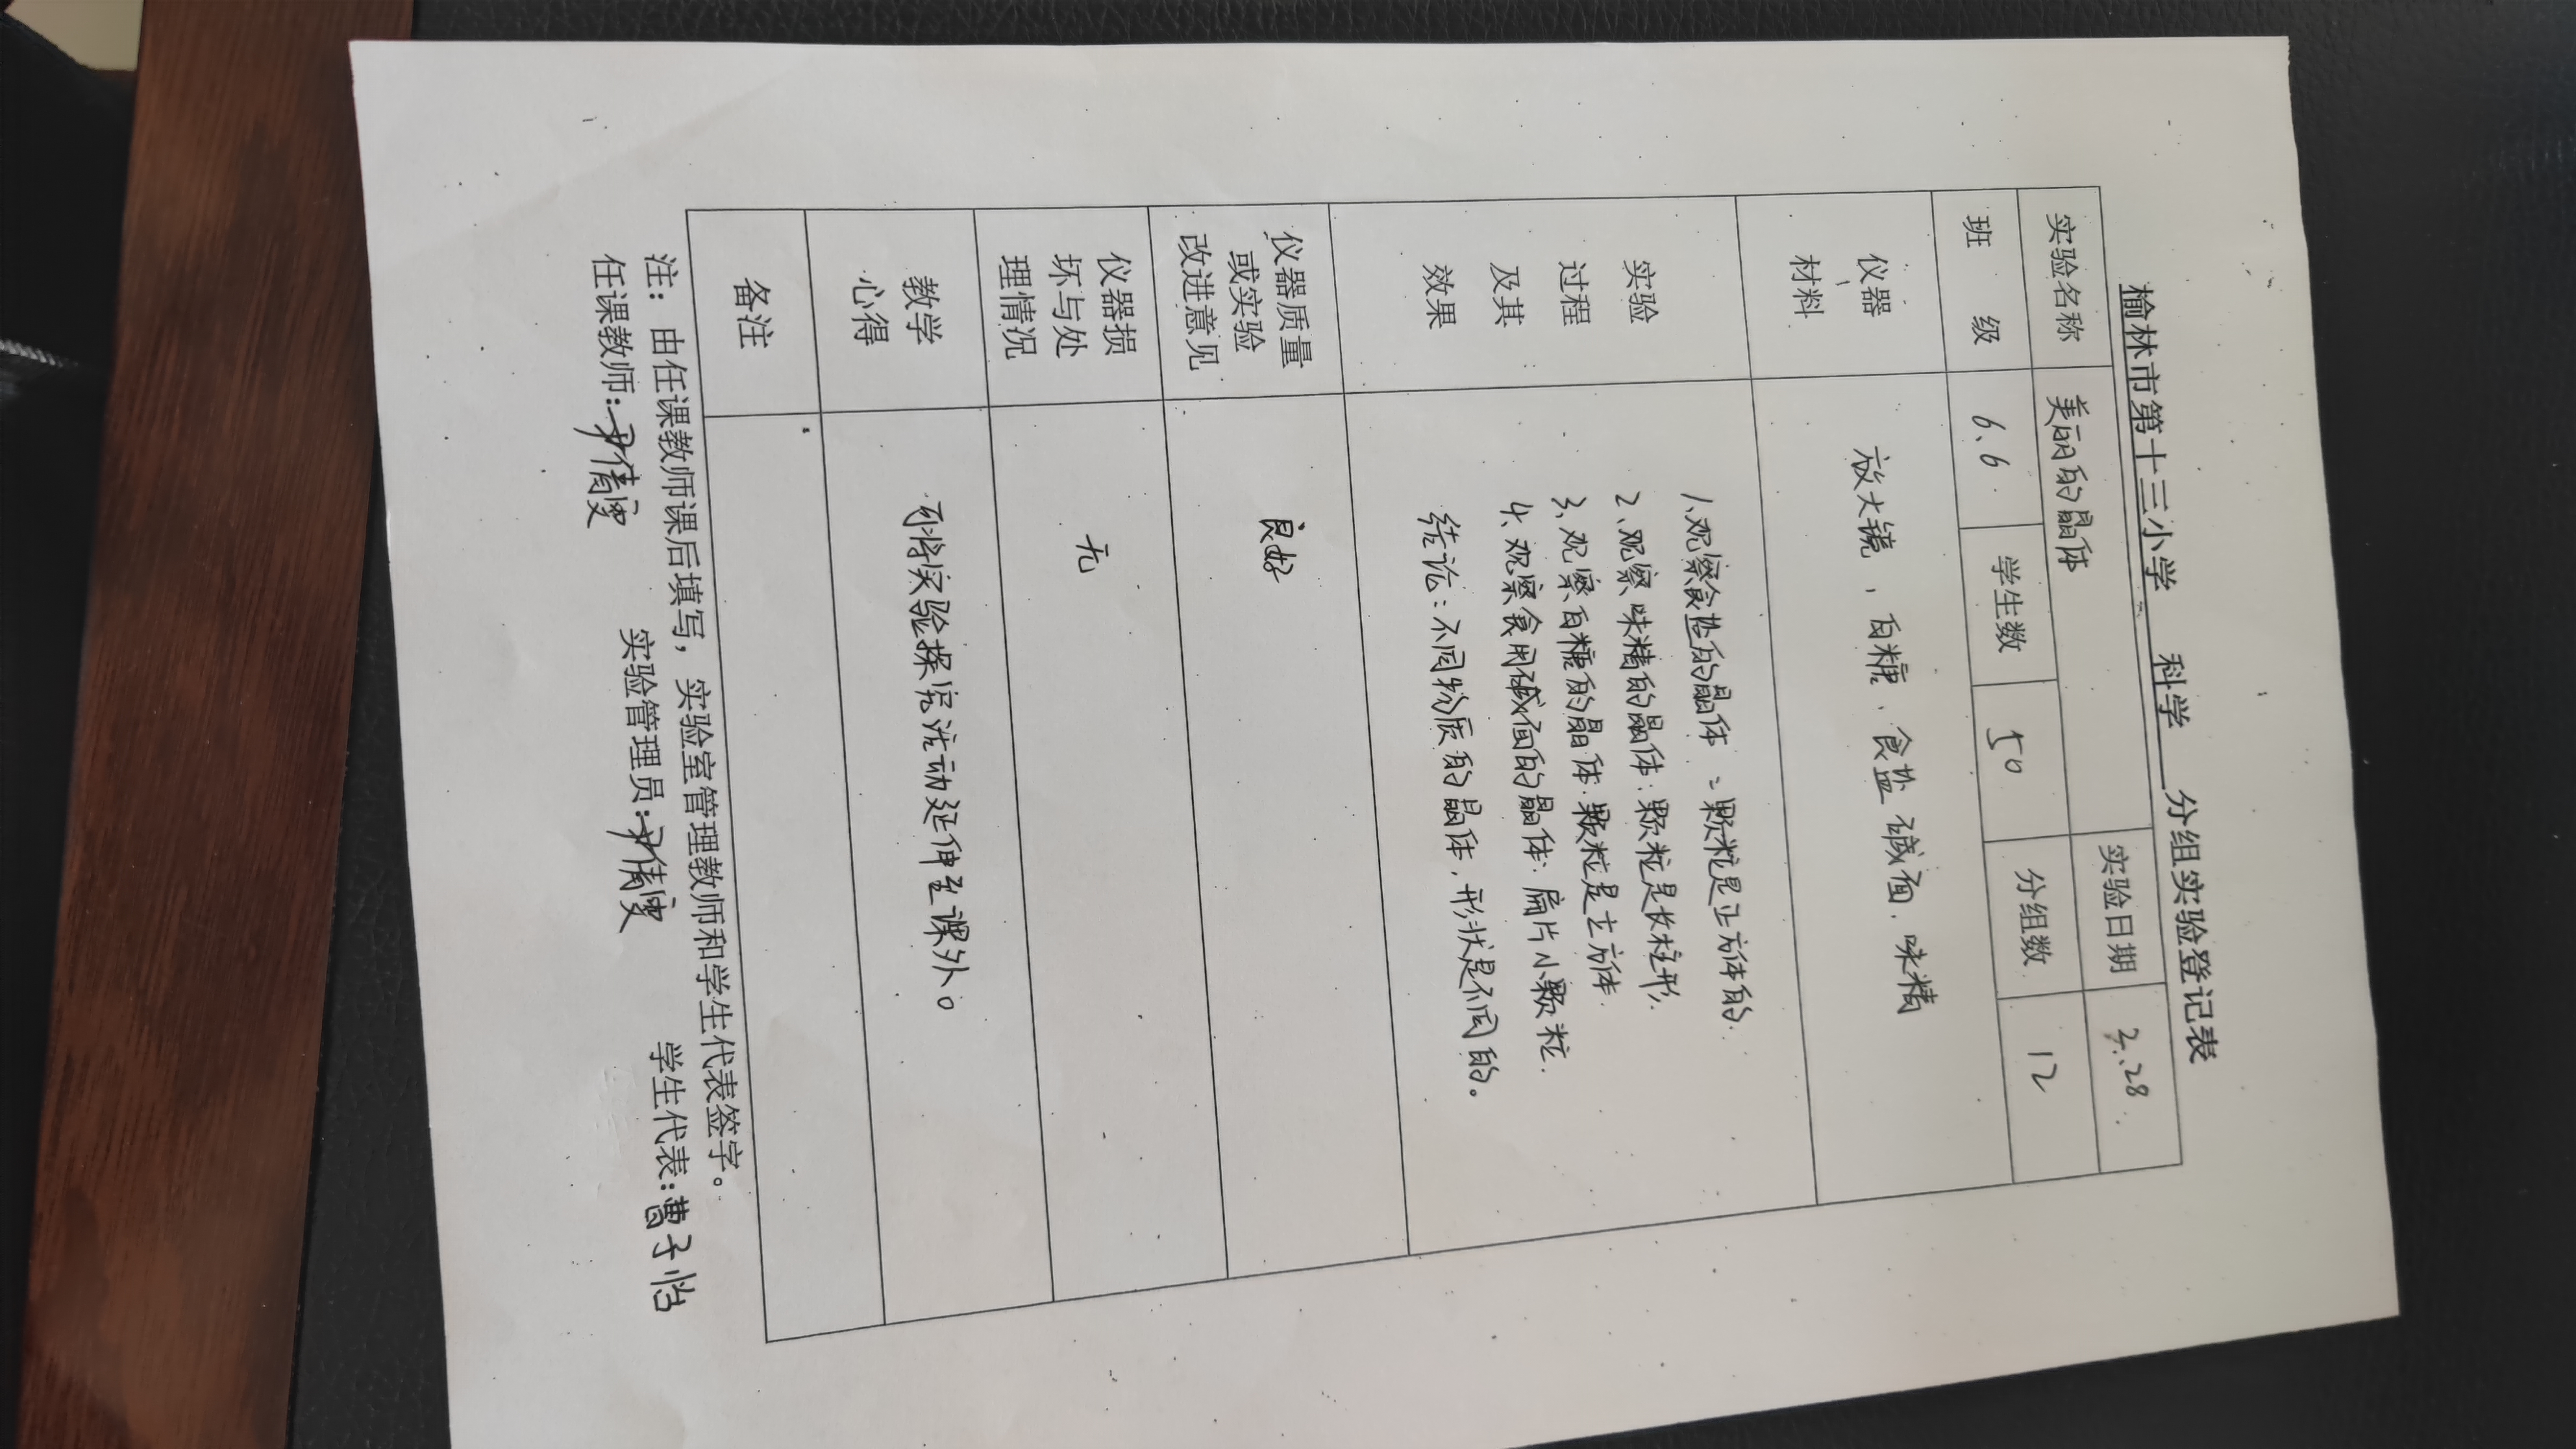 榆林市第十三小学 科学 分组实验登记表
实验名称 美丽的晶体 实验日期 3.28.
班 级 6.6 学生数 50 分组数 12
仪器材料 放大镜，白糖、食盐、碱面、味精
实验过程及其效果
1、观察食盐的晶体：颗粒是正方体的.
2、观察味精的晶体：颗粒是长柱形.
3、观察白糖的晶体：颗粒是立方体.
4、观察食用碱面的晶体：扁片小颗粒.
结论：不同物质的晶体，形状是不同的。
仪器质量或实验改进意见 良好
仪器损坏与处理情况 无
教学心得 可将实验探究活动延伸至课外。
备注
注：由任课教师课后填写，实验室管理教师和学生代表签字。
任课教师： 实验管理员： 学生代表：曹子怡